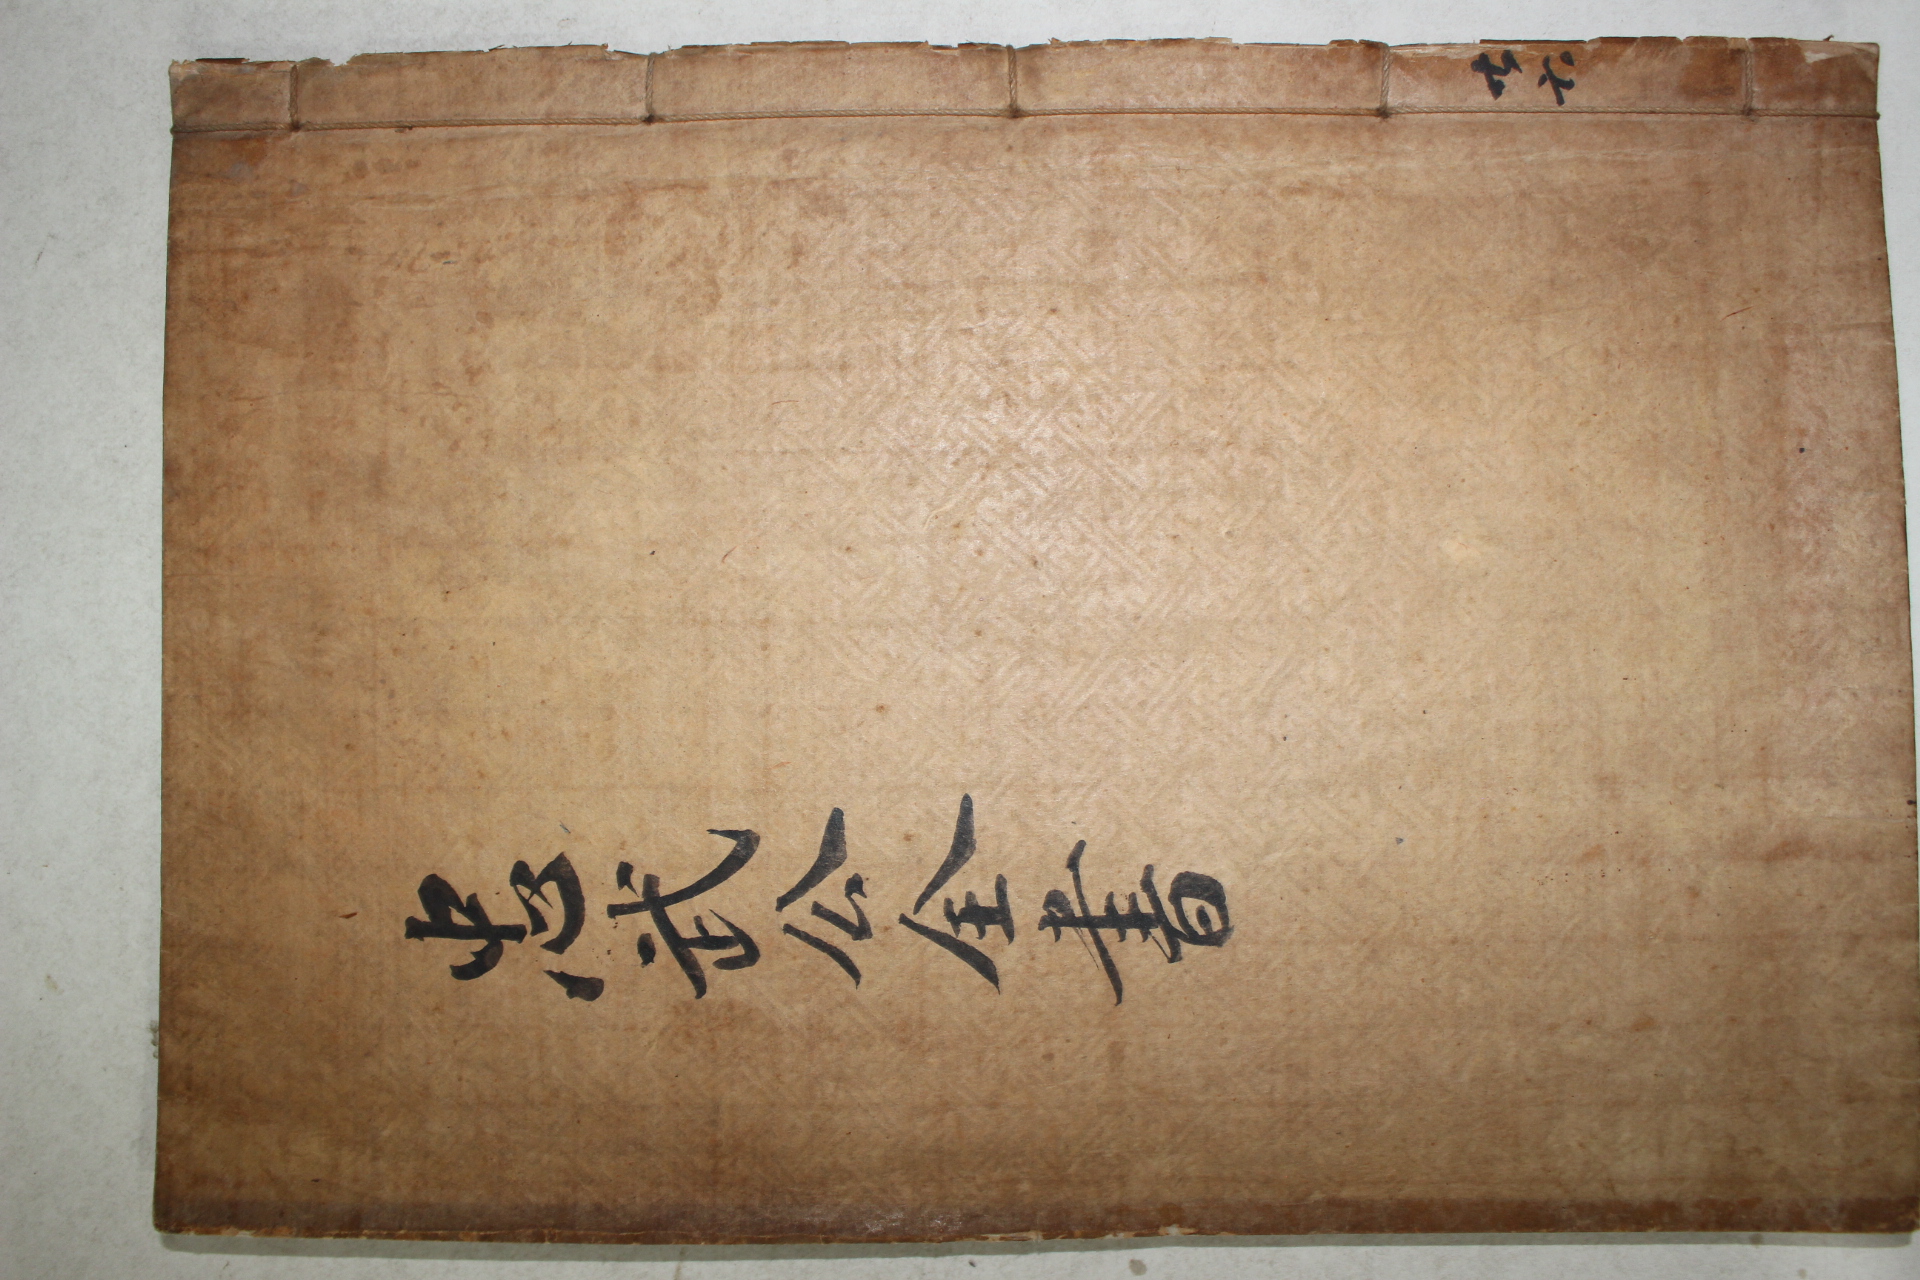 忠武公全書
共六